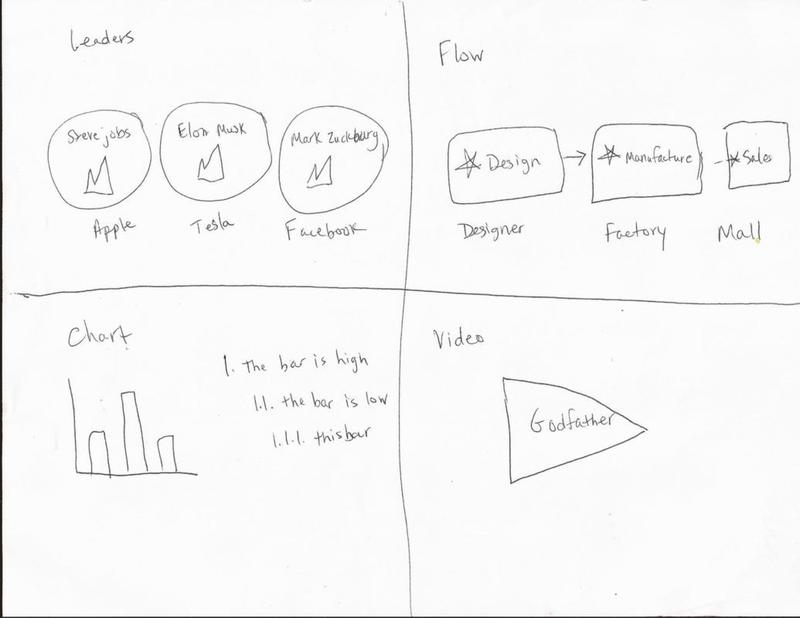 Leaders
Steve jobs
Elon Musk
Mark Zuckburg
Apple
Tesla
Facebook
Flow
Design
Manufacture
Sales
Designer
Factory
Mall
Chart
1. the bar is high
1.1. the bar is low
1.1.1. this bar
Video
Godfather